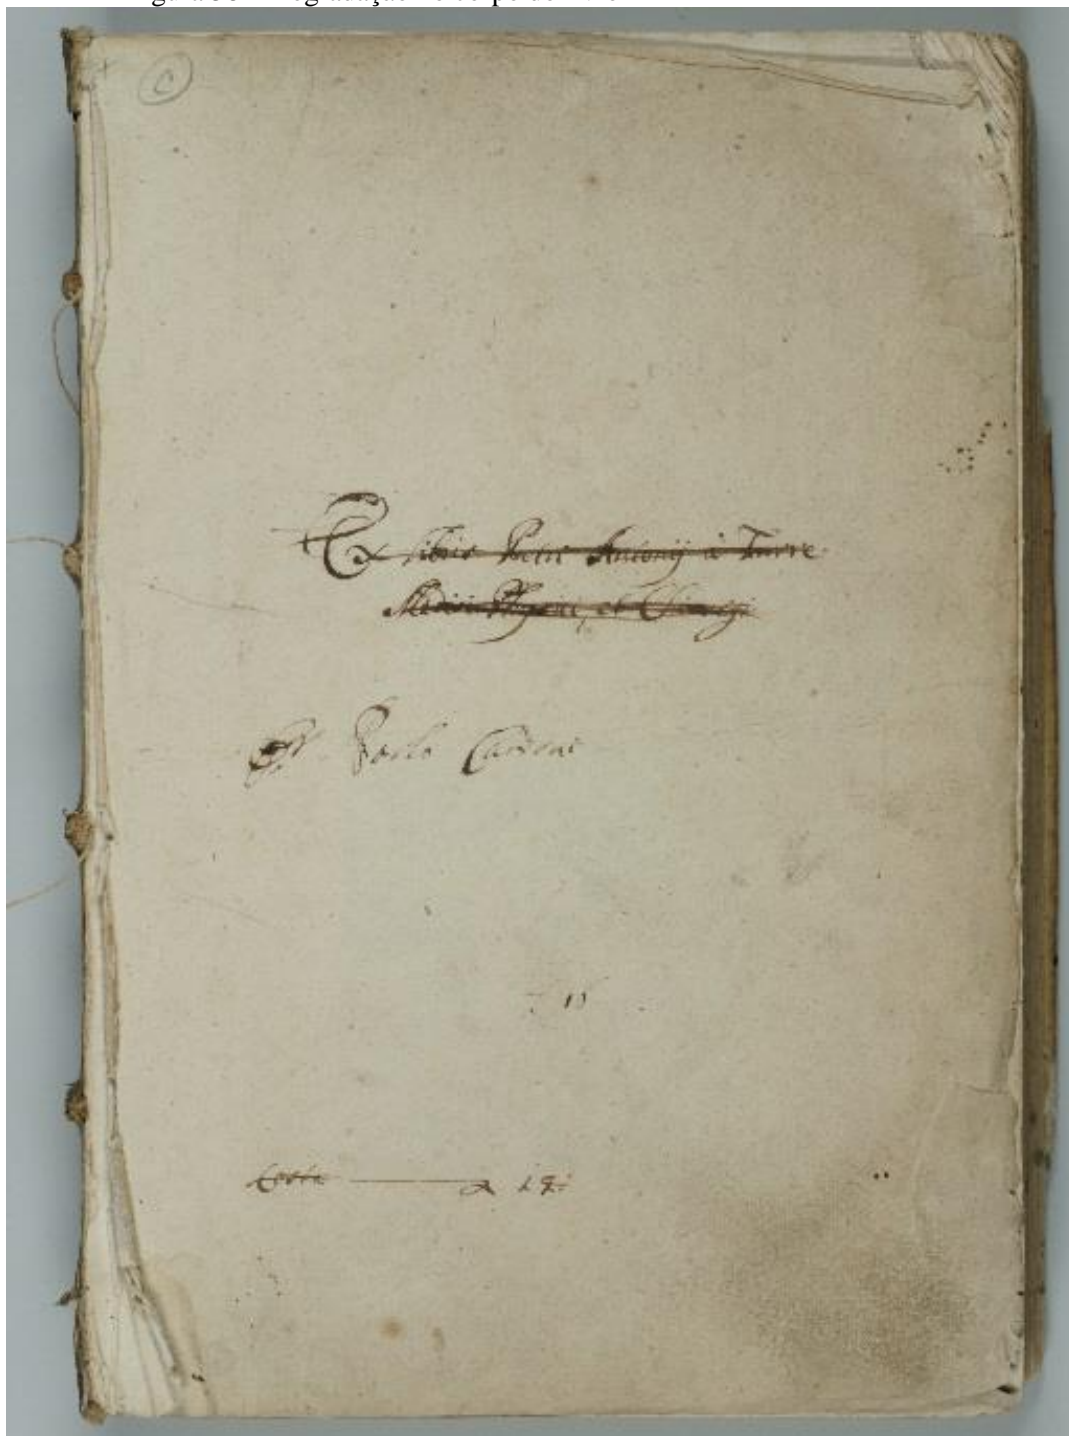 C
Ex libris Petri Antonij à Turre
Medici Physici, et Chirurgi
Paolo
15
Costa a